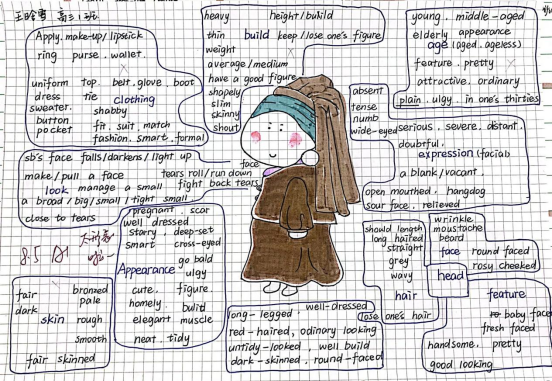 高三1班
Apply. make-up/lipstick
ring purse . wallet.
uniform top belt . glove . boot
dress tie clothing
sweater. shabby
button fit . suit . match
pocket fashion. smart. formal
heavy height/build
thin build keep/lose one's figure
weight
average/medium
have a good figure
shapely
slim
skinny
shout
young . middle-aged
elderly appearance
age (aged. ageless)
feature . pretty
attractive. ordinary
plain . ulgy . in one's thirties
absent
tense
numb
wide-eyed
serious . severe . distant.
doubtful.
expression (facial)
a blank/vacant.
open mouthed. hangdog
sour face . relieved
sb's face falls/darkens/light up
make/pull a face tears roll/run down
look manage a small fight back tears
a broad/big/small/tight small
close to tears
face
8.5
pregnant . scar
well dressed
starry , deep-set
smart cross-eyed
go bald
Appearance ulgy
cute. figure.
homely build
elegant muscle
neat . tidy
fair bronzed
dark pale
skin rough
smooth
fair skinned
long-legged . well-dressed
red-haired, odinary looking
untidy-looked , well build
dark-skinned , round-faced
should length
long haired
straight
grey
wavy
hair
lose one's hair
wrinkle
moustache
beard
face round faced
rosy cheeked
head
feature
baby face
fresh faced
handsome. pretty
good looking